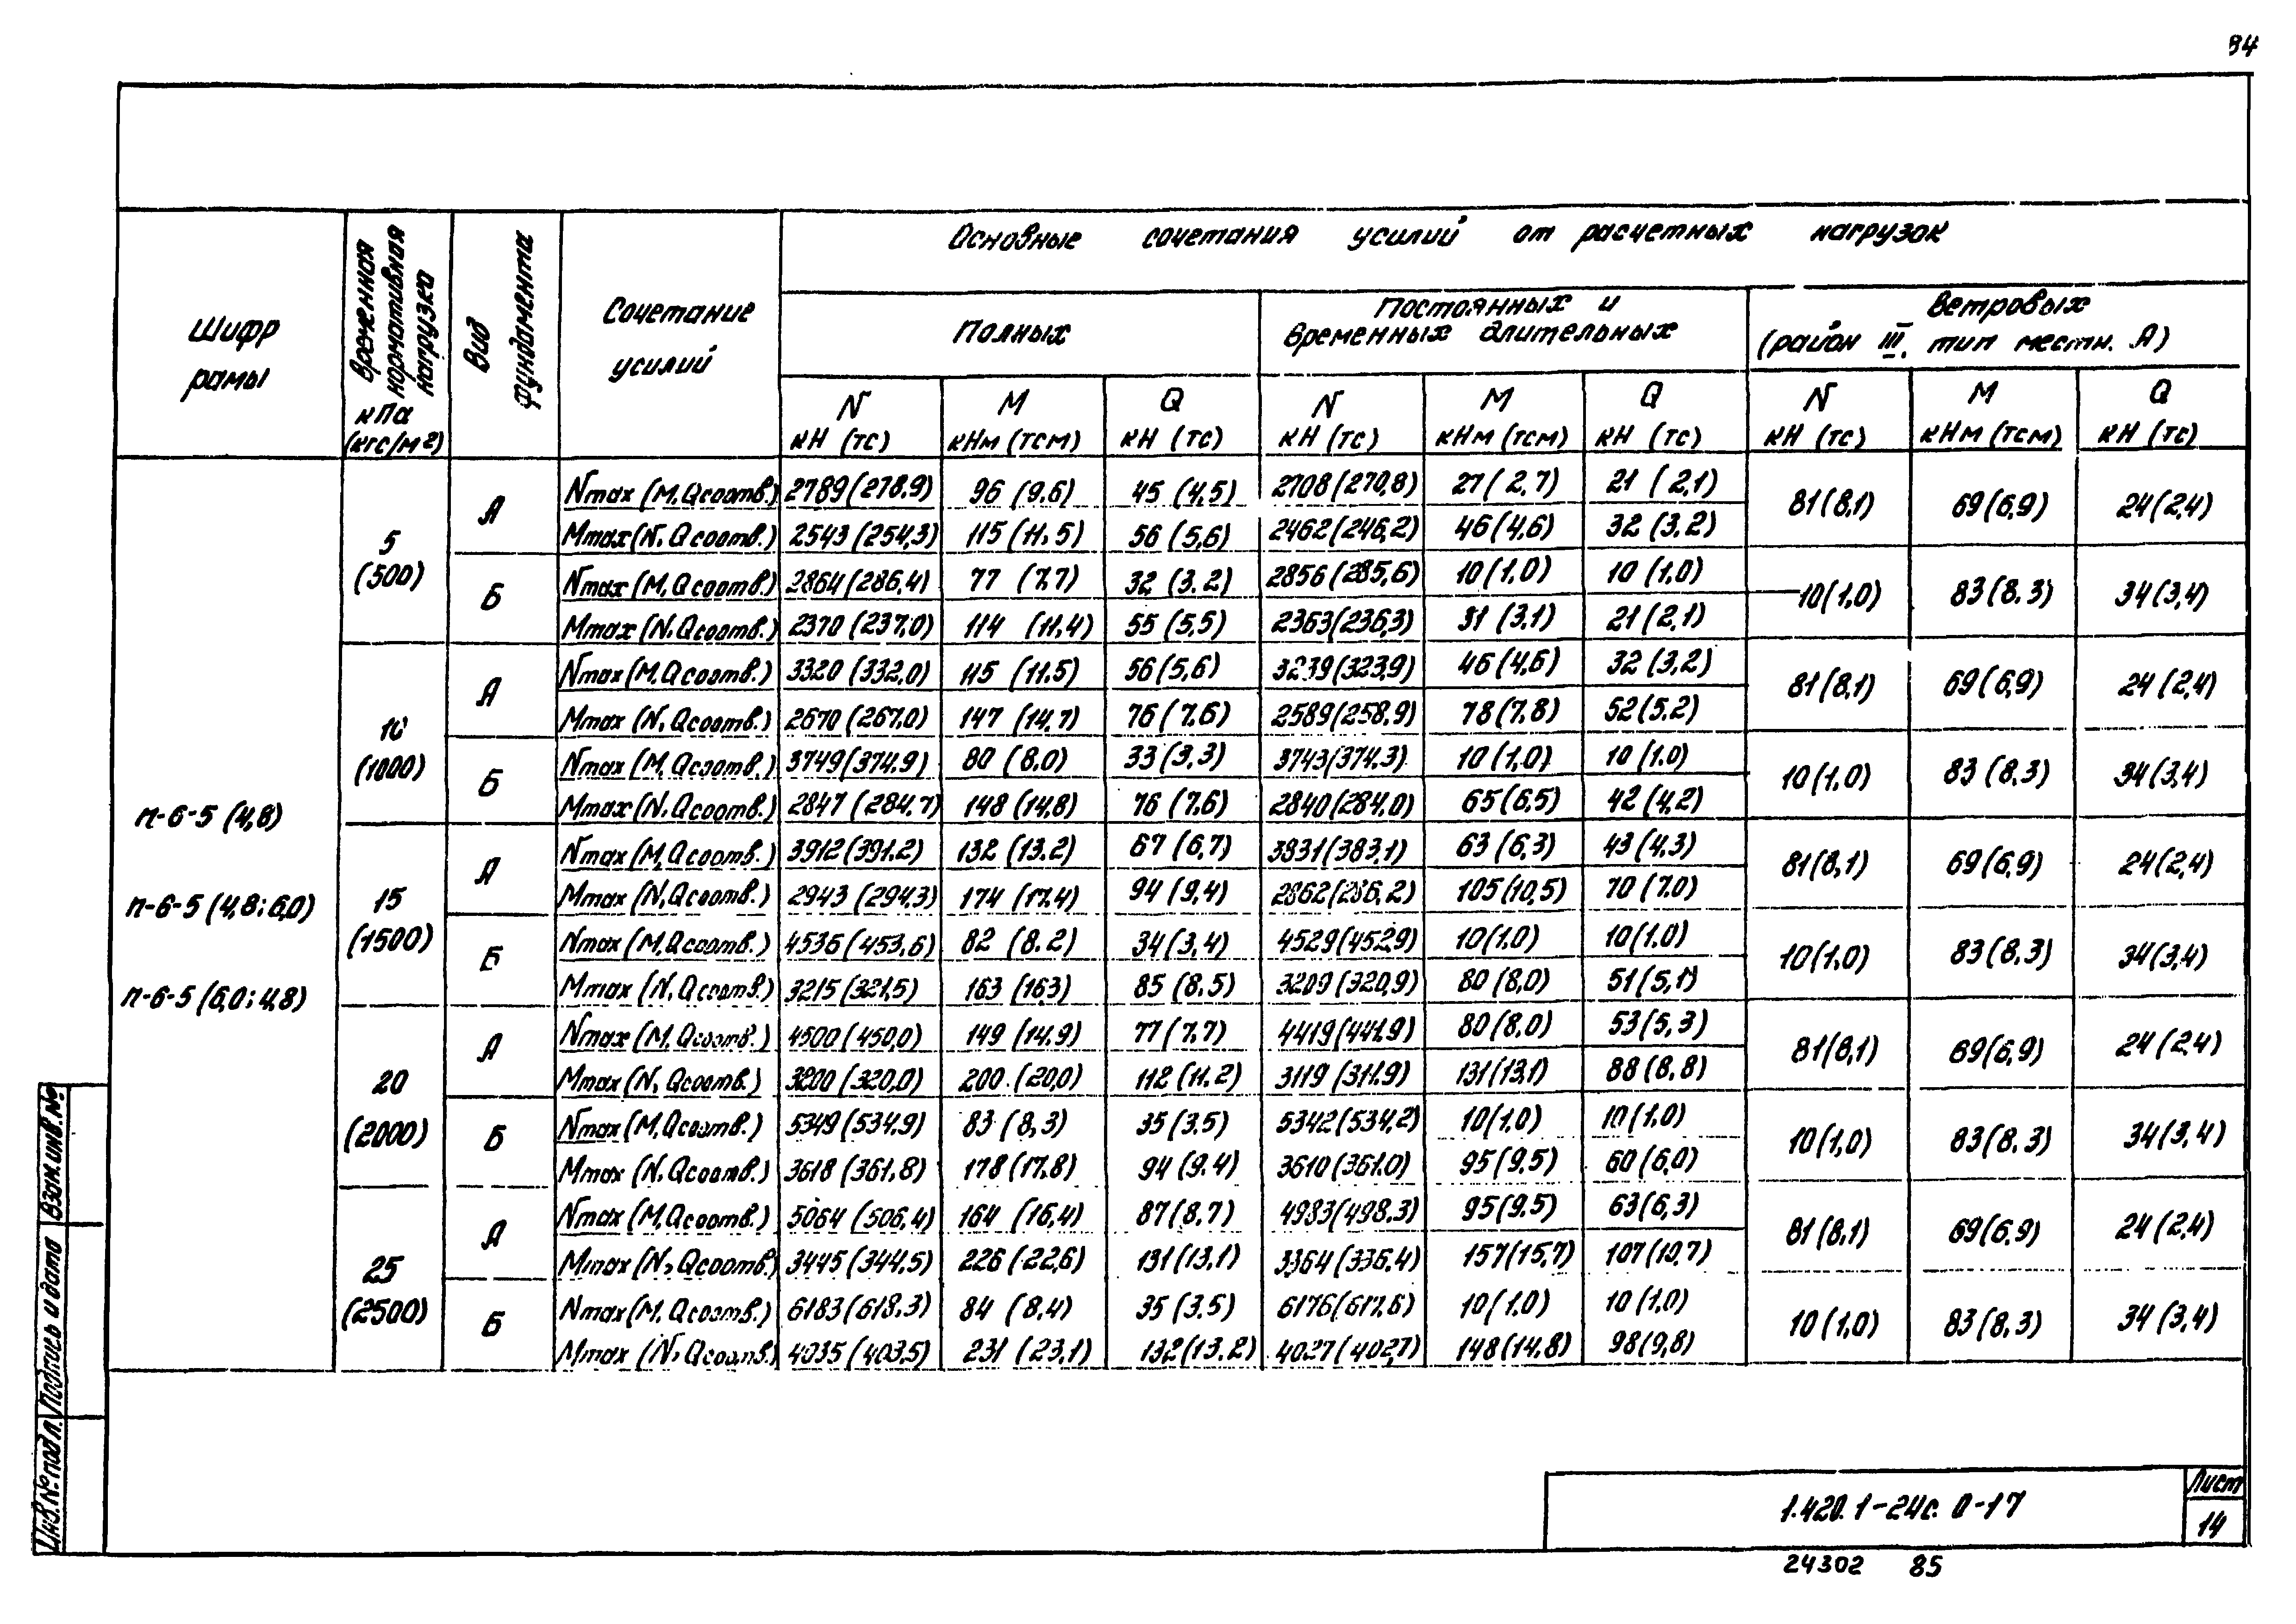 94
Шифр рамы
Временная нормативная нагрузка кПа (кгс/м²)
Вид фундамента
Сочетание усилий
Основные сочетания усилий от расчетных нагрузок
Полных
Постоянных и временных длительных
Ветровых (район III, тип местн. А)
N кН (тс)
М кНм (тсм)
Q кН (тс)
N кН (тс)
М кНм (тсм)
Q кН (тс)
N кН (тс)
М кНм (тсм)
Q кН (тс)
п-6-5 (4,8)
п-6-5 (4,8; 6,0)
п-6-5 (6,0; 4,8)
5 (500)
А
Nmax (M, Qсоотв.) 2789 (278,9) 96 (9,6) 45 (4,5) 2708 (270,8) 27 (2,7) 21 (2,1)
81 (8,1) 69 (6,9) 24 (2,4)
Mmax (N, Qсоотв.) 2543 (254,3) 115 (11,5) 56 (5,6) 2462 (246,2) 46 (4,6) 32 (3,2)
Б
Nmax (M, Qсоотв.) 2864 (286,4) 77 (7,7) 32 (3,2) 2856 (285,6) 10 (1,0) 10 (1,0)
10 (1,0) 83 (8,3) 34 (3,4)
Mmax (N, Qсоотв.) 2370 (237,0) 114 (11,4) 55 (5,5) 2363 (236,3) 31 (3,1) 21 (2,1)
10 (1000)
А
Nmax (M, Qсоотв.) 3320 (332,0) 115 (11,5) 56 (5,6) 3239 (323,9) 46 (4,6) 32 (3,2)
81 (8,1) 69 (6,9) 24 (2,4)
Mmax (N, Qсоотв.) 2670 (267,0) 147 (14,7) 76 (7,6) 2589 (258,9) 78 (7,8) 52 (5,2)
Б
Nmax (M, Qсоотв.) 3749 (374,9) 80 (8,0) 33 (3,3) 3743 (374,3) 10 (1,0) 10 (1,0)
10 (1,0) 83 (8,3) 34 (3,4)
Mmax (N, Qсоотв.) 2847 (284,7) 148 (14,8) 76 (7,6) 2840 (284,0) 65 (6,5) 42 (4,2)
15 (1500)
А
Nmax (M, Qсоотв.) 3912 (391,2) 132 (13,2) 67 (6,7) 3831 (383,1) 63 (6,3) 43 (4,3)
81 (8,1) 69 (6,9) 24 (2,4)
Mmax (N, Qсоотв.) 2943 (294,3) 174 (17,4) 94 (9,4) 2862 (286,2) 105 (10,5) 70 (7,0)
Б
Nmax (M, Qсоотв.) 4536 (453,6) 82 (8,2) 34 (3,4) 4529 (452,9) 10 (1,0) 10 (1,0)
10 (1,0) 83 (8,3) 34 (3,4)
Mmax (N, Qсоотв.) 3215 (321,5) 163 (16,3) 85 (8,5) 3209 (320,9) 80 (8,0) 51 (5,1)
20 (2000)
А
Nmax (M, Qсоотв.) 4500 (450,0) 149 (14,9) 77 (7,7) 4419 (441,9) 80 (8,0) 53 (5,3)
81 (8,1) 69 (6,9) 24 (2,4)
Mmax (N, Qсоотв.) 3200 (320,0) 200 (20,0) 112 (11,2) 3119 (311,9) 131 (13,1) 88 (8,8)
Б
Nmax (M, Qсоотв.) 5349 (534,9) 83 (8,3) 35 (3,5) 5342 (534,2) 10 (1,0) 10 (1,0)
10 (1,0) 83 (8,3) 34 (3,4)
Mmax (N, Qсоотв.) 3618 (361,8) 178 (17,8) 94 (9,4) 3610 (361,0) 95 (9,5) 60 (6,0)
25 (2500)
А
Nmax (M, Qсоотв.) 5064 (506,4) 164 (16,4) 87 (8,7) 4983 (498,3) 95 (9,5) 63 (6,3)
81 (8,1) 69 (6,9) 24 (2,4)
Mmax (N, Qсоотв.) 3445 (344,5) 226 (22,6) 131 (13,1) 3364 (336,4) 157 (15,7) 107 (10,7)
Б
Nmax (M, Qсоотв.) 6183 (618,3) 84 (8,4) 35 (3,5) 6176 (617,6) 10 (1,0) 10 (1,0)
10 (1,0) 83 (8,3) 34 (3,4)
Mmax (N, Qсоотв.) 4035 (403,5) 231 (23,1) 132 (13,2) 4027 (402,7) 148 (14,8) 98 (9,8)
Инв. № подл.
Подпись и дата
Взам. инв. №
1.420.1-24с. 0-17
Лист
14
24302 85